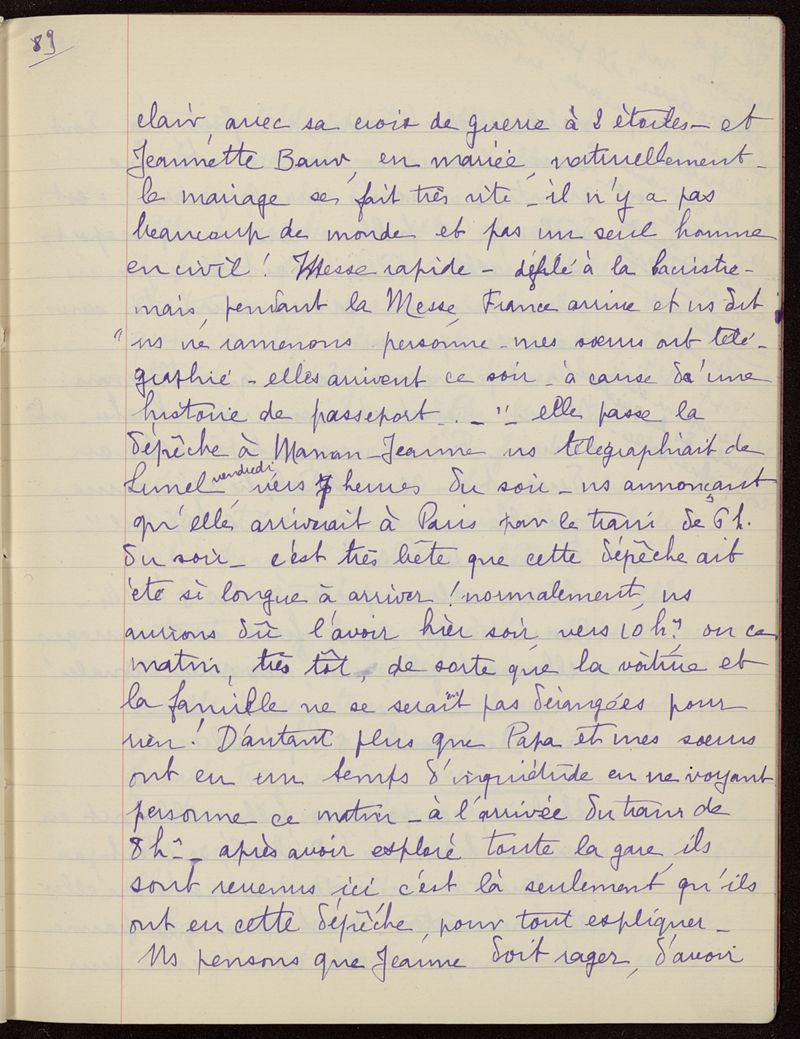 89
clair, avec sa croix de guerre à 2 étoiles – et
Jeannette Baur, en mariée, naturellement –
le mariage se fait très vite – il n'y a pas
beaucoup de monde et pas un seul homme
en civil ! Messe rapide – défilé à la sacristie –
mais, pendant la Messe, France arrive et ns dit
" ns ne ramenons personne – mes sœurs ont télé-
graphié – elles arrivent ce soir – à cause d'une
histoire de passeport . – " – elle passe la
dépêche à Maman – Jeanne ns télégraphiait de
Lunel vendredi vers 7 heures du soir – ns annonçant
qu'elle arriverait à Paris par le train de 6 h.
du soir – c'est très bête que cette dépêche ait
été si longue à arriver ! normalement, ns
aurions dû l'avoir hier soir, vers 10 h, ou ce
matin, très tôt, de sorte que la voiture et
la famille ne se seraient pas dérangées pour
rien ! D'autant plus que Papa et mes sœurs
ont eu un temps d'inquiétude en ne voyant
personne ce matin – à l'arrivée du train de
8 h – après avoir exploré toute la gare, ils
sont revenus ici c'est là seulement qu'ils
ont eu cette dépêche, pour tout expliquer –
Ns pensons que Jeanne doit rager, d'avoir